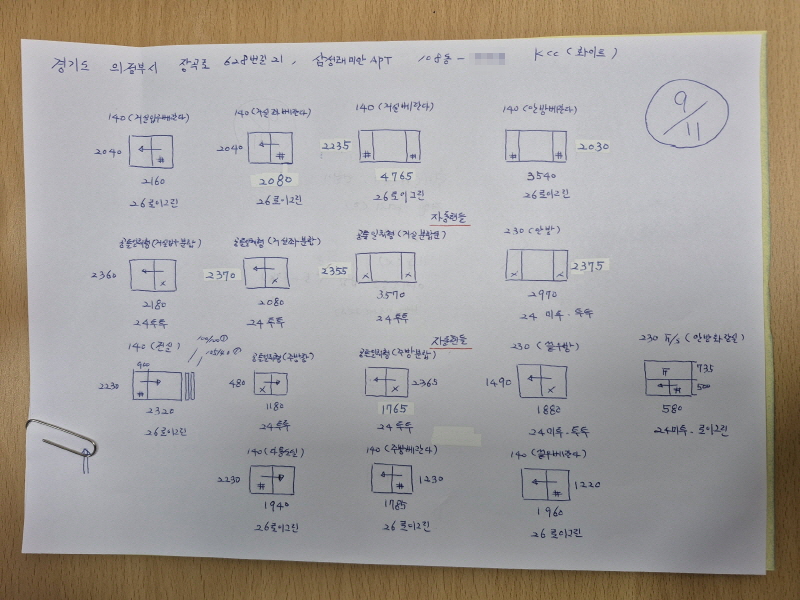 경기도 의정부시 장곡로 628번길 21, 삼성래미안 APT 108동- KCC (화이트)
9/11
140 (거실입우베란다)
2040
2160
26로이그린
140 (거실좌베란다)
2040
2080
26로이그린
140 (거실베란다)
2235
4765
26로이그린
140 (안방베란다)
2030
3540
26로이그린
2360
2180
24투투
2370
2080
24투투
자동핸들
공틀일체형 (거실분합문)
2355
3570
24투투
230 (안방)
2375
2970
24 미투·투투
140 (전실)
900
2230
2320
26로이그린
480
1180
24투투
자동핸들
공틀일체형 (주방분합)
2365
1765
24투투
230 (끝우방)
1490
1880
24미투·투투
735
500
580
24미투·로이그린
2230
1940
26로이그린
140 (주방베란다)
1230
1785
26로이그린
140 (끝우베란다)
1220
1960
26로이그린